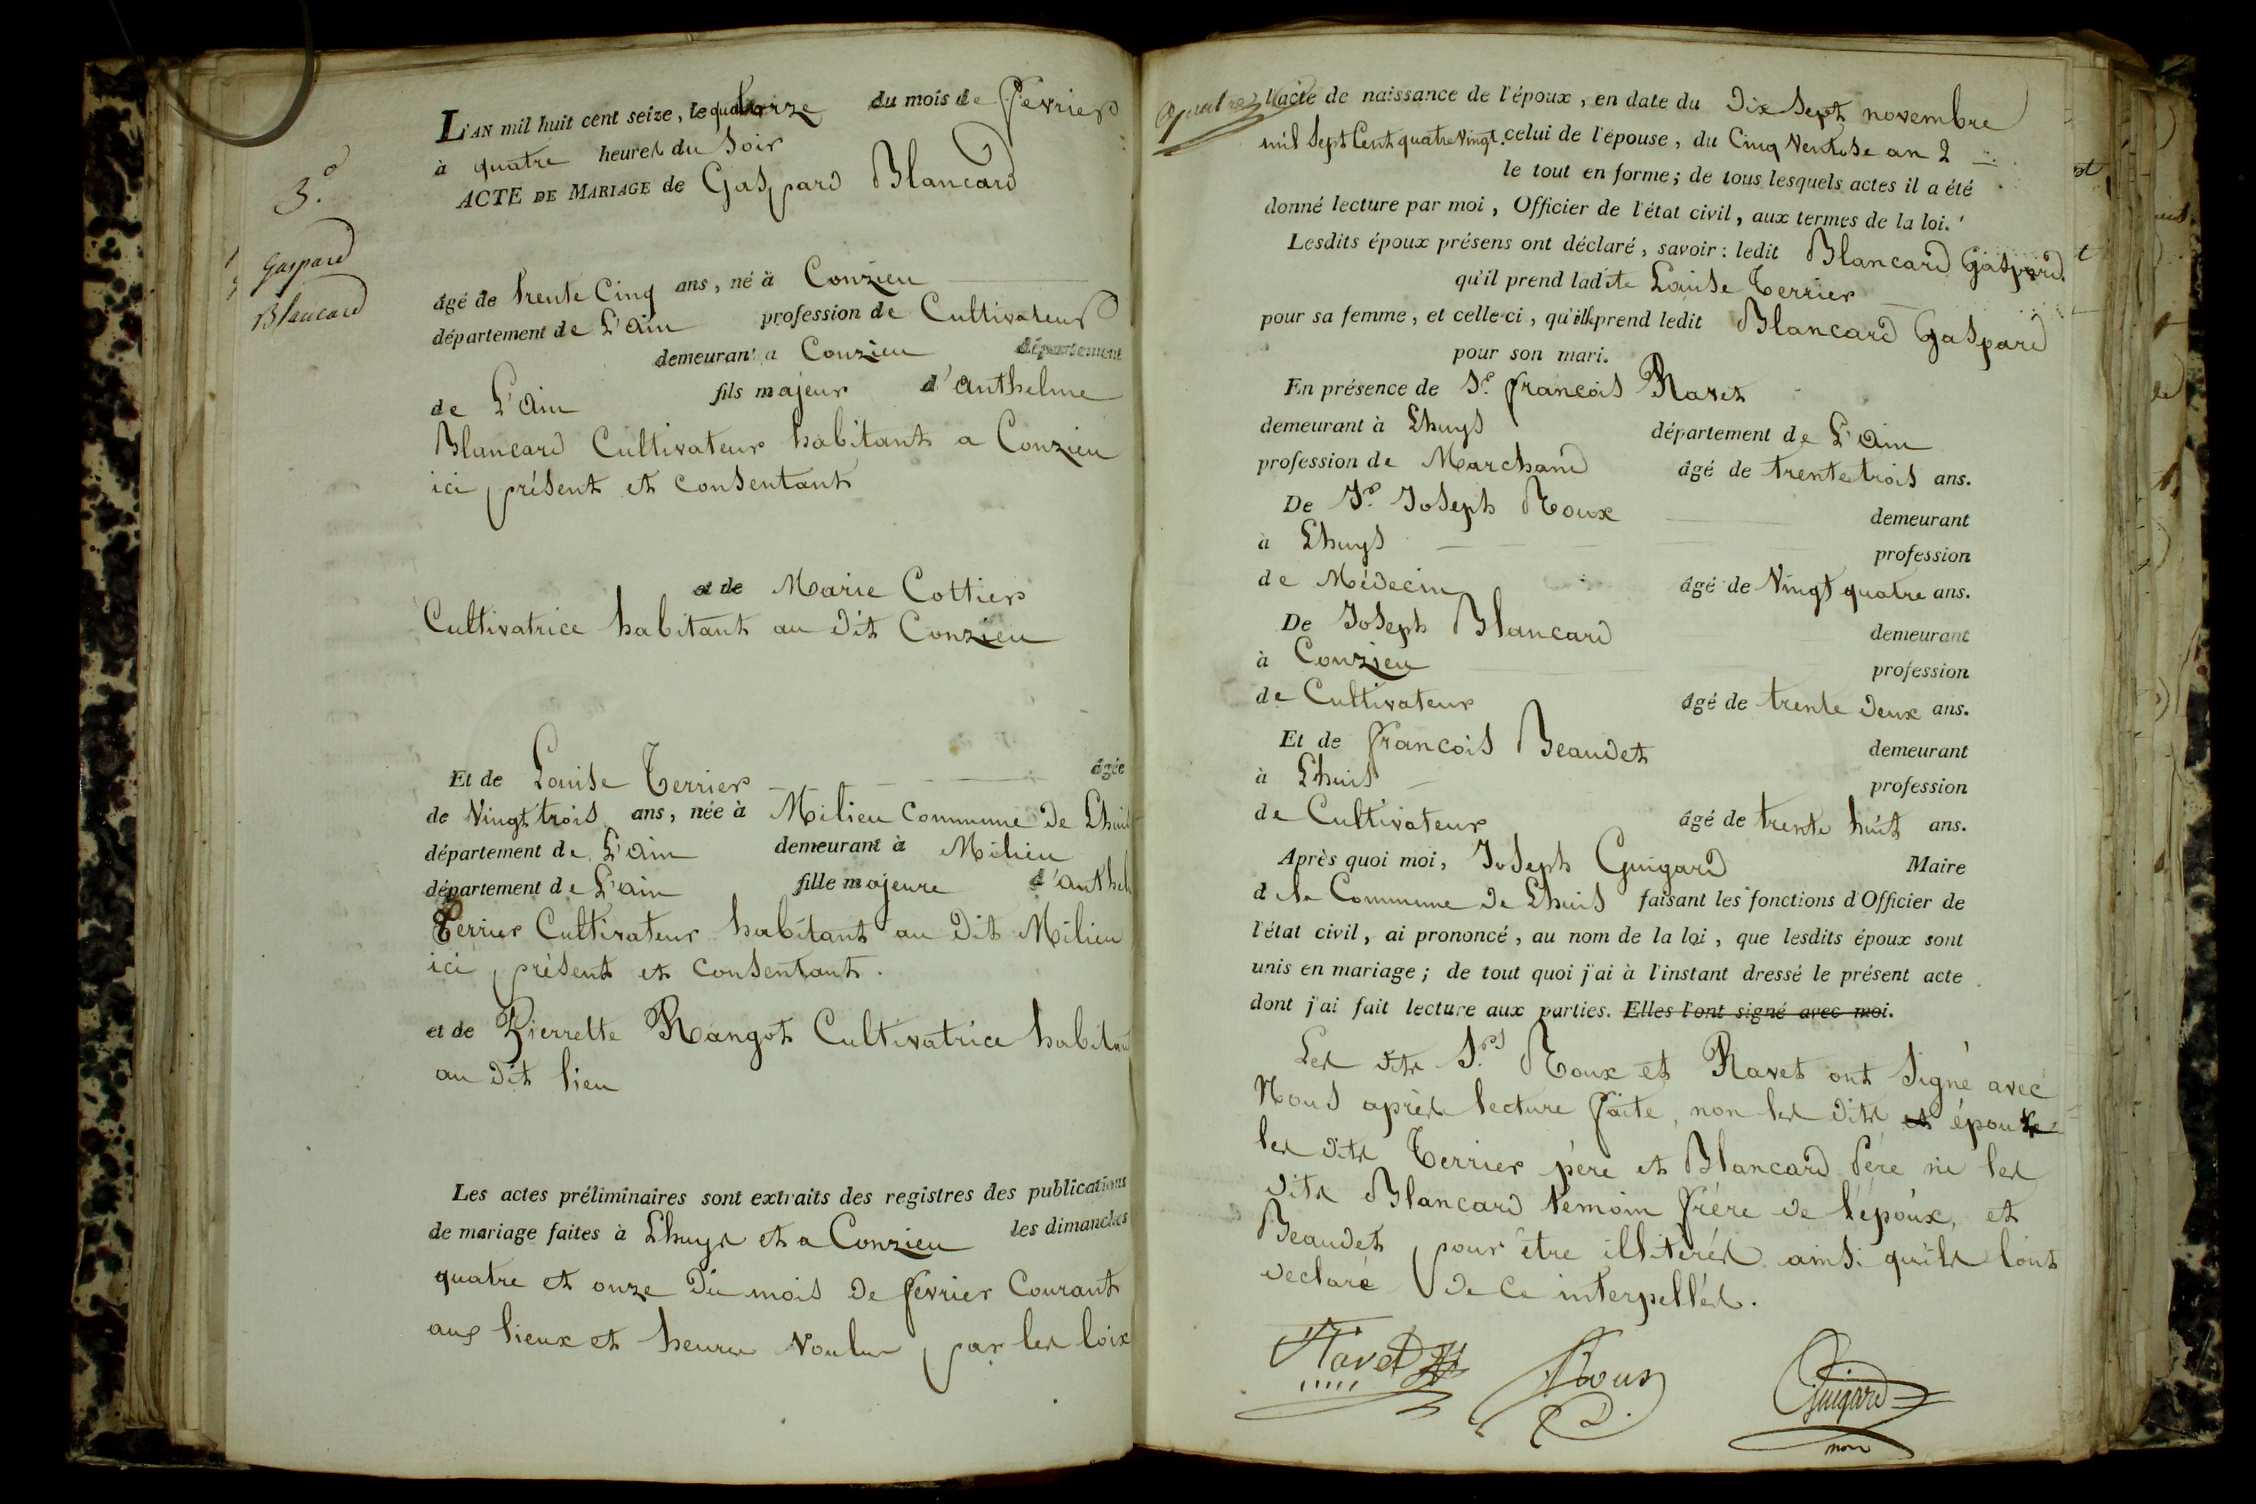 L'AN mil huit cent seize, le quatorze du mois de fevrier
à quatre heures du Soir
ACTE DE MARIAGE de Gaspard Blancard
3.e
Gaspard
Blancard
âgé de trente Cinq ans, né à Conzieu
département de L'ain profession de Cultivateur
demeurant a Conzieu département
de L'ain fils majeur d'anthelme
Blancard Cultivateur habitant a Conzieu
ici présent et consentant
et de Marie Cottier
Cultivatrice habitant au dit Conzieu
Et de Louise Terrier âgée
de Vingt trois ans, née à Milieu Commune de Lhuis
département de L'ain demeurant à Milieu
département de L'ain fille majeure d'anthel
Terrier Cultivateur habitant au dit Milieu
ici présent et consentant.
et de Pierrette Rangot Cultivatrice habitant
au dit lieu
Les actes préliminaires sont extraits des registres des publications
de mariage faites à Lhuys et a Conzieu les dimanches
quatre et onze du mois de fevrier Courant
aux lieux et heures voulus par les loix
l'acte de naissance de l'époux, en date du dix Sept novembre
mil Sept Cent quatre Vingt. celui de l'épouse, du Cinq Ventose an 2
le tout en forme; de tous lesquels actes il a été
donné lecture par moi, Officier de l'état civil, aux termes de la loi.
Lesdits époux présens ont déclaré, savoir: ledit Blancard Gaspard.
qu'il prend ladite Louise Terrier
pour sa femme, et celle-ci, qu'elle prend ledit Blancard Gaspard
pour son mari.
En présence de Sr. francois Ravet
demeurant à Lhuys département de L'ain
profession de Marchand âgé de trente trois ans.
De Sr. Joseph Roux demeurant
à Lhuys profession
de Médecin âgé de Vingt quatre ans.
De Joseph Blancard demeurant
à Conzieu profession
de Cultivateur âgé de trente deux ans.
Et de francois Beaudet demeurant
à Lhuis profession
de Cultivateur âgé de trente huit ans.
Après quoi moi, Joseph Guigard Maire
de la Commune de Lhuis faisant les fonctions d'Officier de
l'état civil, ai prononcé, au nom de la loi, que lesdits époux sont
unis en mariage; de tout quoi j'ai à l'instant dressé le présent acte
dont j'ai fait lecture aux parties. Elles l'ont signé avec moi.
Les dits Srs Roux et Ravet ont Signé avec
Nous après lecture faite, non les dits et époux
les dits Terrier père et Blancard père ni les
dits Blancard temoin frére de l'époux, et
Beaudet pour être illitérés ainsi quils l'ont
declaré de ce interpellés.
Ravet Roux Guigard